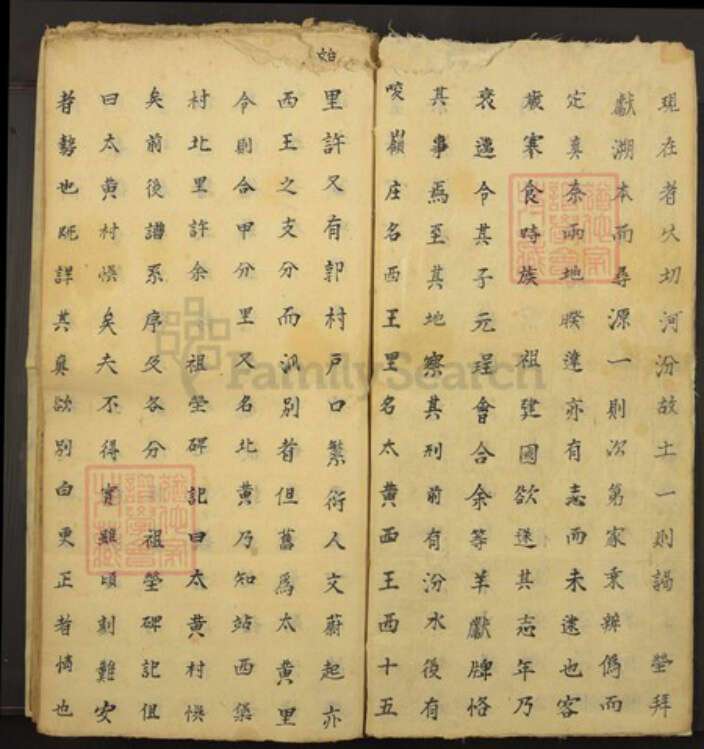 現在者火切河汾故土一則謁 塋拜
獻溯本而尋源一則次第家乘辨僞而
定真奈兩地睽違亦有志而未逮也客
歲寒食時族 祖建國欲遂其志年乃
衰邁令其子元珵會合余等羊獻牌恪
其事焉至其地察其形前有汾水後有
崚嶺庄名西王里名太黃西王西十五
里許又有郭村戶口繁衍人文蔚起亦
西王之支分而派別者但舊爲太黃里
今則合甲分里又名北黃乃知站西築
村北里許余 祖塋碑記曰太黃村悞
矣前後譜系序及各分 祖塋碑記俱
曰太黃村悞矣夫不得實雖頃刻難安
者勢也既詳其真欲別白更正者情也
FamilySearch